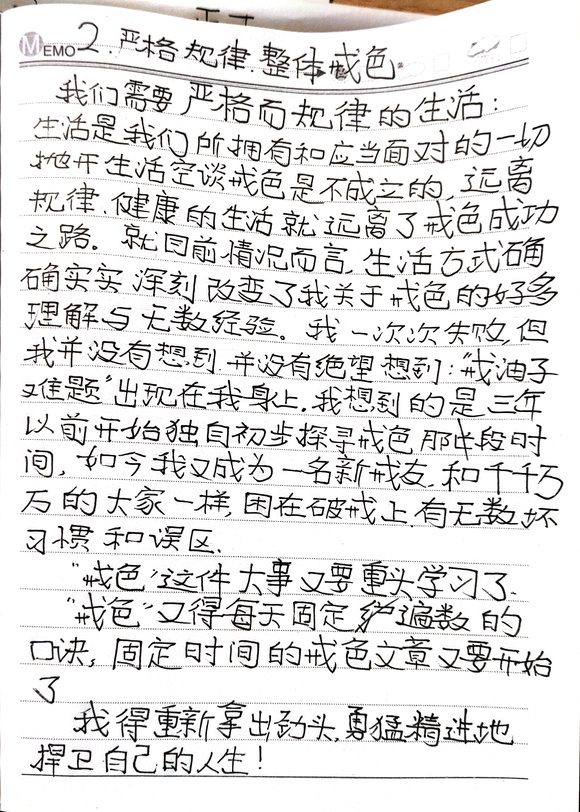 MEMO 2. 严格规律.整体戒色。
我们需要严格而规律的生活:
生活是我们所拥有和应当面对的一切
抛开生活空谈戒色是不成立的, 远离
规律、健康的生活就远离了戒色成功
之路。就目前情况而言, 生活方式确
确实实深刻改变了我关于戒色的好多
理解与无数经验。我一次次失败, 但
我并没有想到 并没有绝望 想到:“戒油子
难题”出现在我身上.我想到的是三年
以前开始独自初步探寻戒色那片段时
间, 如今我又成为一名新戒友.和千千万
万的大家一样, 困在破戒上.有无数坏
习惯和误区.
“戒色”这件大事又要重头学习了.
“戒色”又得每天固定遍数的
口诀; 固定时间的戒色文章又要开始
了
我得重新拿出劲头,勇猛精进地
捍卫自己的人生!